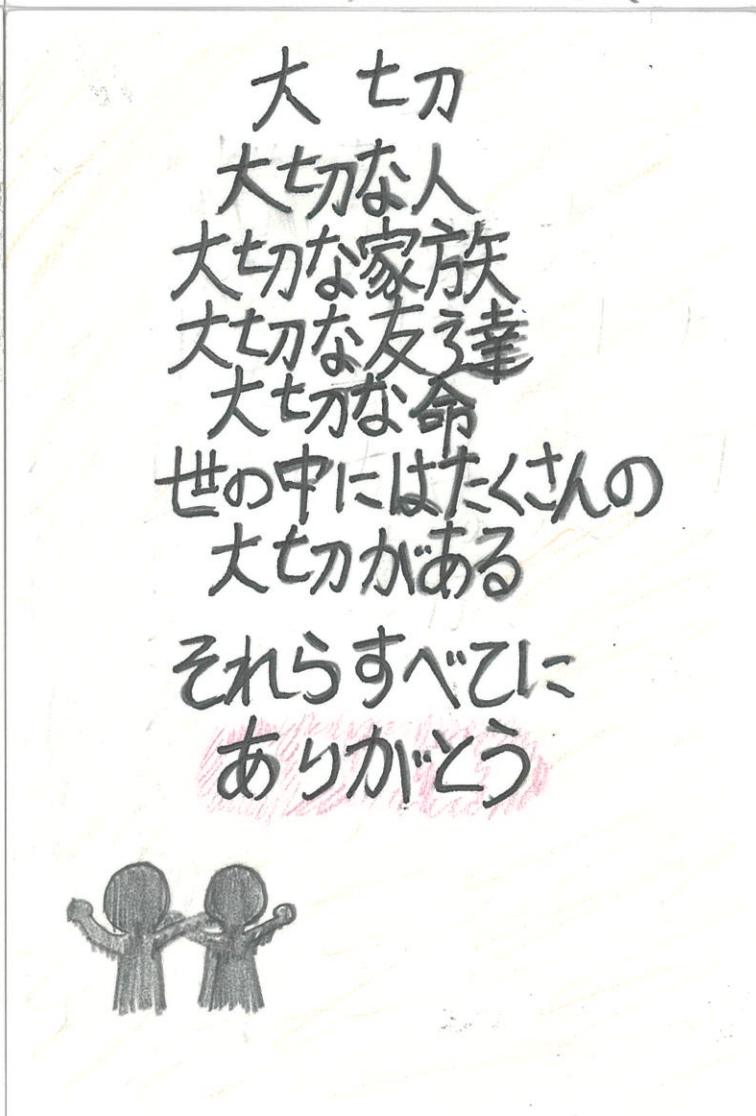 大切
大切な人
大切な家族
大切な友達
大切な命
世の中にはたくさんの
大切がある
それらすべてに
ありがとう